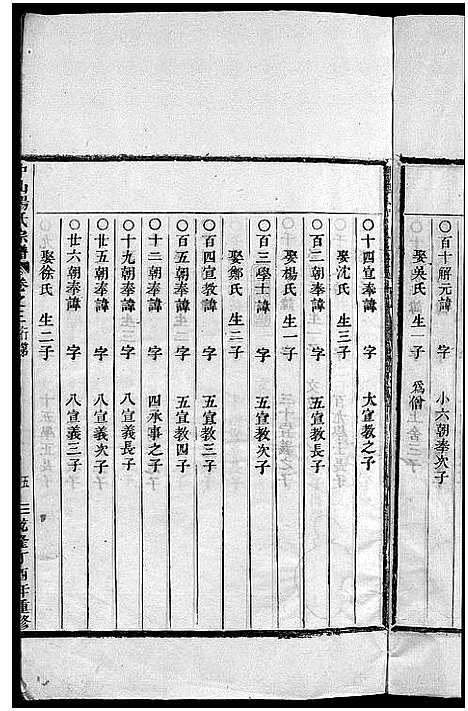 ○百十解元諱 字 小六朝奉次子
娶吳氏 生一子 爲僧
○十四宣奉諱 字 大宣教之子
娶沈氏 生三子
○百二朝奉諱 字 五宣教長子
娶楊氏 生一子
○百三學士諱 字 五宣教次子
娶鄭氏 生三子
○百四宣教諱 字 五宣教三子
○百五朝奉諱 字 五宣教四子
○十二朝奉諱 字 四承事之子
○十九朝奉諱 字 八宣義長子
○廿五朝奉諱 字 八宣義次子
○廿六朝奉諱 字 八宣義三子
娶徐氏 生二子
山楊氏宗譜 卷之三 行第 五 乾隆丁酉重修